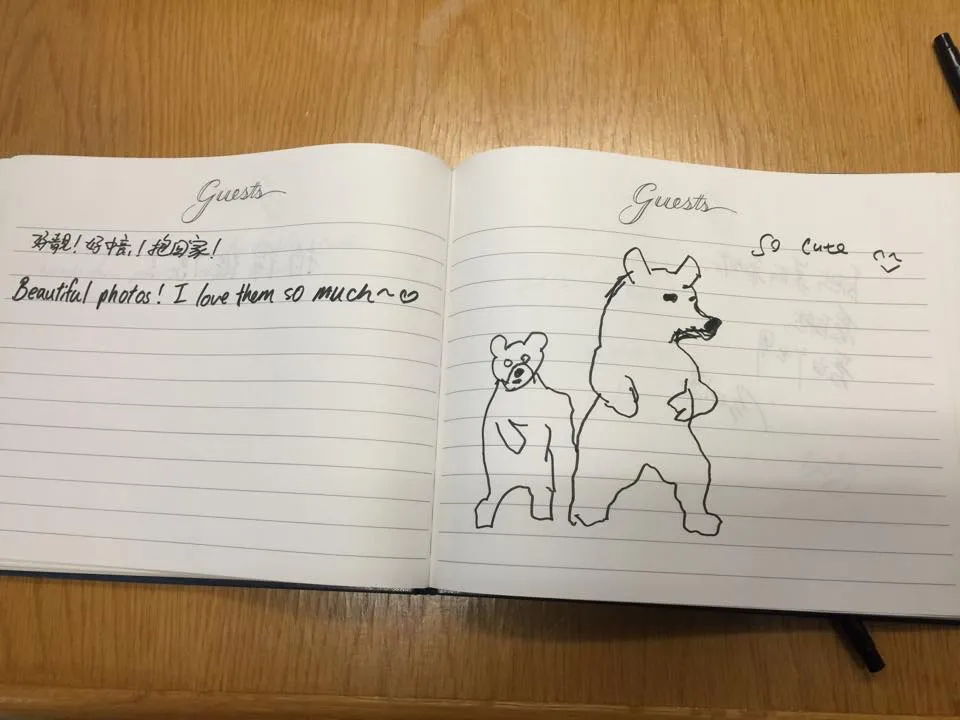 Guests
好靚!好中意!抱回家!
Beautiful photos! I love them so much~♡
Guests
So cute